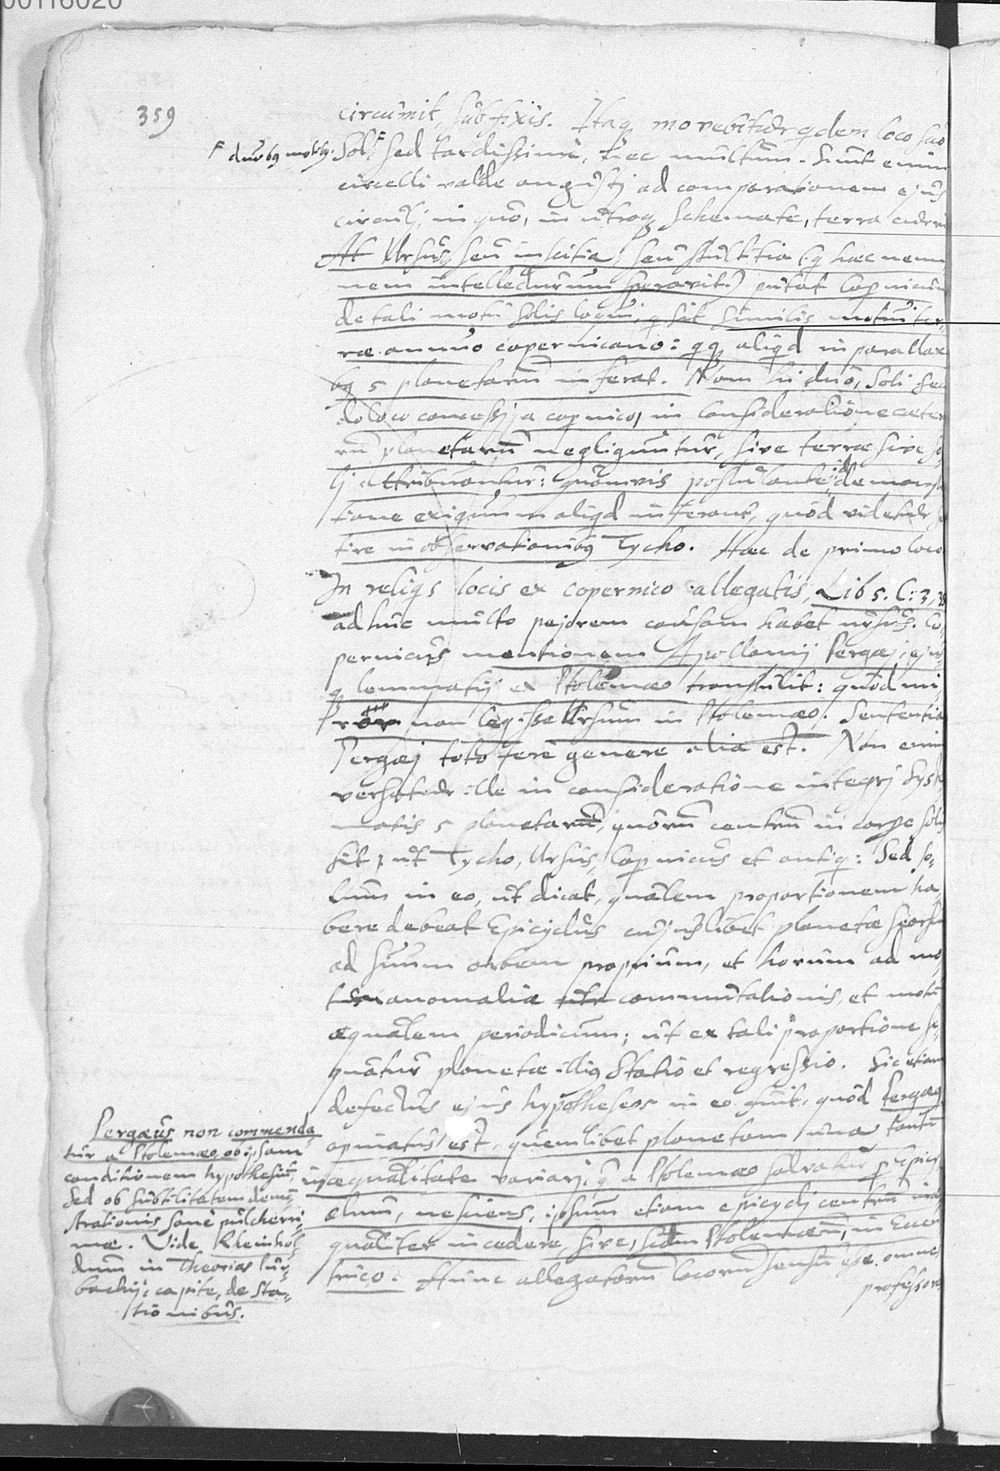 00116020
359
circumit, subfixis. Itaq movebitur qdem loco suo
duobq motibq.
Sol sed tardissime, nec multum. Sunt enim
circelli valde angusti ad comparationem ejus
circuli, in quo, in utroq Schemate, terra
At Ursus, seu inscitia, seu stultitia (q haec nemi
nem intellecturum speravit) putat Copernicum
de tali motu solis loqui, q sit similis motui ter
rae annuo copernicano: qq aliqd in parallax
bq 5 planetarum inferat. Nam hi duo, Soli
do loco concessi, a copnico, in consideratione caeter
rum planetarum negliguntur, sive terrae sive so
li attribuantur: quamvis postulante id demonstra
tione exiguum aliqd inferant, quod videtur
tire in observationibq Tycho. Haec de primo loco
In reliqs locis ex copernico allegatis, Lib 5. C: 3,
adhuc multo pejorem causam habet ursus. Co
pernicus mentionem Apollonij Pergaei, ejus
q lemmatis ex Ptolemaeo transtulit: quod mi
ror non legisse Ursum in Ptolemaeo. Sententia
Pergaei toto fere genere alia est. Non enim
versatur ille in consideratione integri Syste
matis 5 planetarum, quorum centrum in corpe solis
sit, ut Tycho, Ursus, Copnicus et antiq: Sed so
lum in eo, ut dicat, qualem proportionem ha
bere debeat Epicyclus cujuslibet planetae seorsim
ad suum orbem proprium, et horum ad mo
tum anomaliae commutationis, et motum
aequalem periodicum; ut ex tali proportione se
quatur planetae illiq Statio et regressio. Sic etiam
defectus ejus hypotheseos in eo fuit, quod Pergaeq
opinatus est, quemlibet planetam una tantum
inaequalitate variari, q a Ptolemaeo salvatur p Epicy
clum, nesciens, ipsum etiam epicycli centrum inae
qualiter incedere, sive, secundum Ptolemaeum, in Eccen
trico. Hunc allegatorum locorum sensum esse, omnes
professores
Pergaeus non commenda
tur a Ptolemaeo, ob ipsam
conditionem hypothesium,
sed ob subtilitatem demon
strationis sane pulcherri
mae. Vide Rheinhol
dum in Theorias Pur
bachij: capite, de Sta-
tionibus.